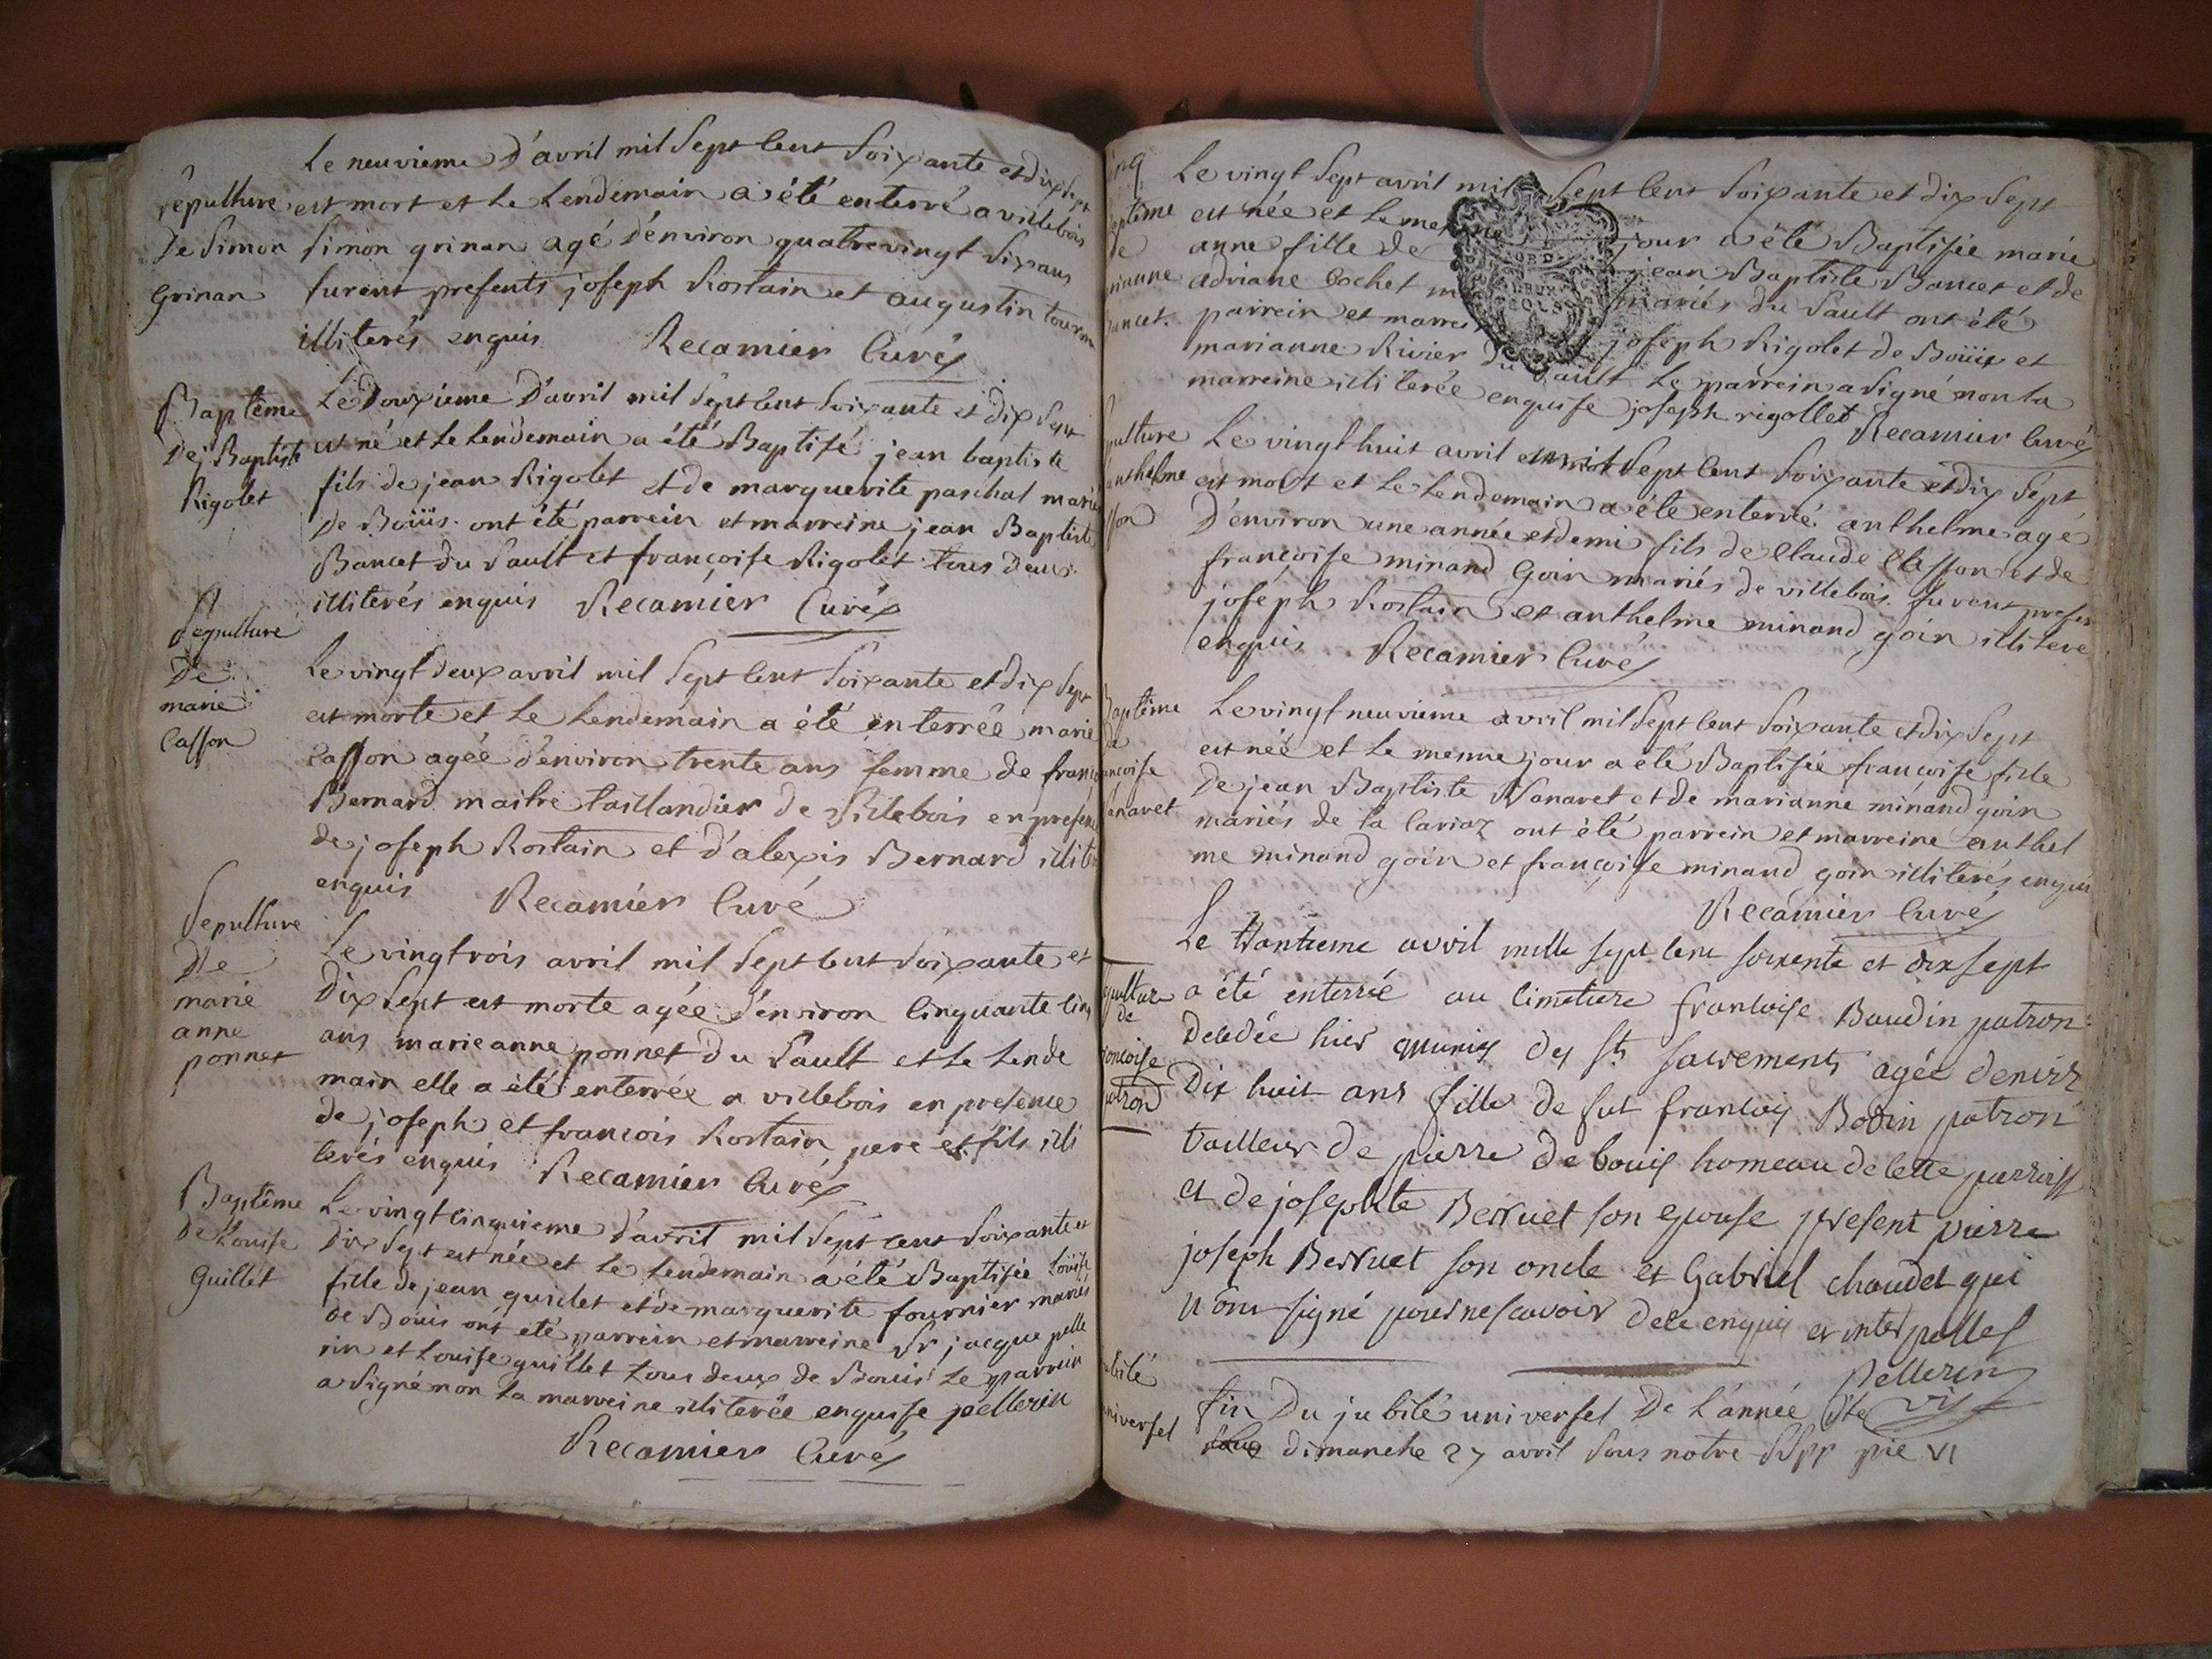 Le neuvieme D'avril mil Sept Cent Soixante et dix Sept
Sepulture est mort et le Lendemain a été enterré a villebois
De Simon Simon grinan agé D'environ quatrevingt Six ans
Grinan furent presents joseph Rostain et augustin
illiterés enquis Recamier Curé
Baptême Le Douzieme D'avril mil Sept Cent Soixante et dix Sept
De j Baptist est né et le Lendemain a été Baptisé jean baptiste
Rigolet fils de jean Rigolet et de marguerite paschal mariés
De Boüis. ont été parrein et marreine jean Baptiste
Bancet du Sault et françoise Rigolet tous deux
illiterés enquis Recamier Curé
Sepulture
De
marie
Casson
Le vingt deux avril mil Sept Cent Soixante et Dix Sept
est morte et Le Lendemain a été enterrée marie
Casson agée d'environ trente ans femme de
Bernard maitre taillandier de Villebois en presence
de joseph Rostain et d'alexis Bernard
enquis Recamier Curé
Sepulture
De
marie
anne
ponnet
Le vingtrois avril mil Sept Cent Soixante et
Dix Sept est morte agée D'environ Cinquante Cinq
ans marieanne ponnet Du Sault et le Lende
main elle a été enterrée a villebois en presence
de joseph et francois Rostain pere et fils illi
terés enquis Recamier Curé
Baptême Le vingt Cinquieme d'avril mil Sept Cent Soixante et
De Louise Dix Sept est née et le Lendemain a été Baptisée Louise
Guillet fille de jean guillet et de marguerite fournier mariés
De Bouis ont été parrein et marreine Sr jacque pelle
rin et Louise guillet tous deux de Bouis Le parrein
a Signé non la marreine illiterée enquise pellerin
Recamier Curé
Le vingt Sept avril mil Sept Cent Soixante et dix Sept
est née et Le mesme jour a été Baptisée marie
anne fille de jean Baptiste Bancet et de
adriane Cochet mariés du Sault ont été
parrein et marreine joseph Rigolet de Boüis et
marianne Rivier Du Sault Le parrein a Signé non la
marreine illiterée enquise joseph rigollet Recamier Curé
Le vingt huit avril mil Sept Cent Soixante et dix Sept
est mort et Le Lendemain a été enterré anthelme agé
D'environ une année et demi fils de Claude Casson et de
françoise minand Goin mariés de villebois. furent
joseph Rostain et anthelme minand goin illitere
enquis Recamier Curé
Le vingt neuvieme avril mil Sept Cent Soixante et dix Sept
est née et Le meme jour a été Baptisée françoise fille
De jean Baptiste Vanaret et de marianne minand goin
mariés de la Cariaz ont été parrein et marreine anthel
me minand goin et françoise minand goin illiterés enquis
Recamier Curé
Le trantieme avril mille sept cent soixente et dix sept
a été enterrée au Cimetiere francoise Baudin patron
Decedée hier munis des Sts sacrements agée denvir
Dix huit ans fille de fut francois Bodin patron
tailleur de pierre de bouis homeau de Cette parroiss
et de josephte Berruet son epouse present pierre
joseph Berruet son oncle et Gabriel chaudet qui
n'ont signé pour ne scavoir dece enquis et interpelles
Pellerin
vis
fin Du jubilé universel De L'année Ste
dimanche 27 avril Sous notre pie VI